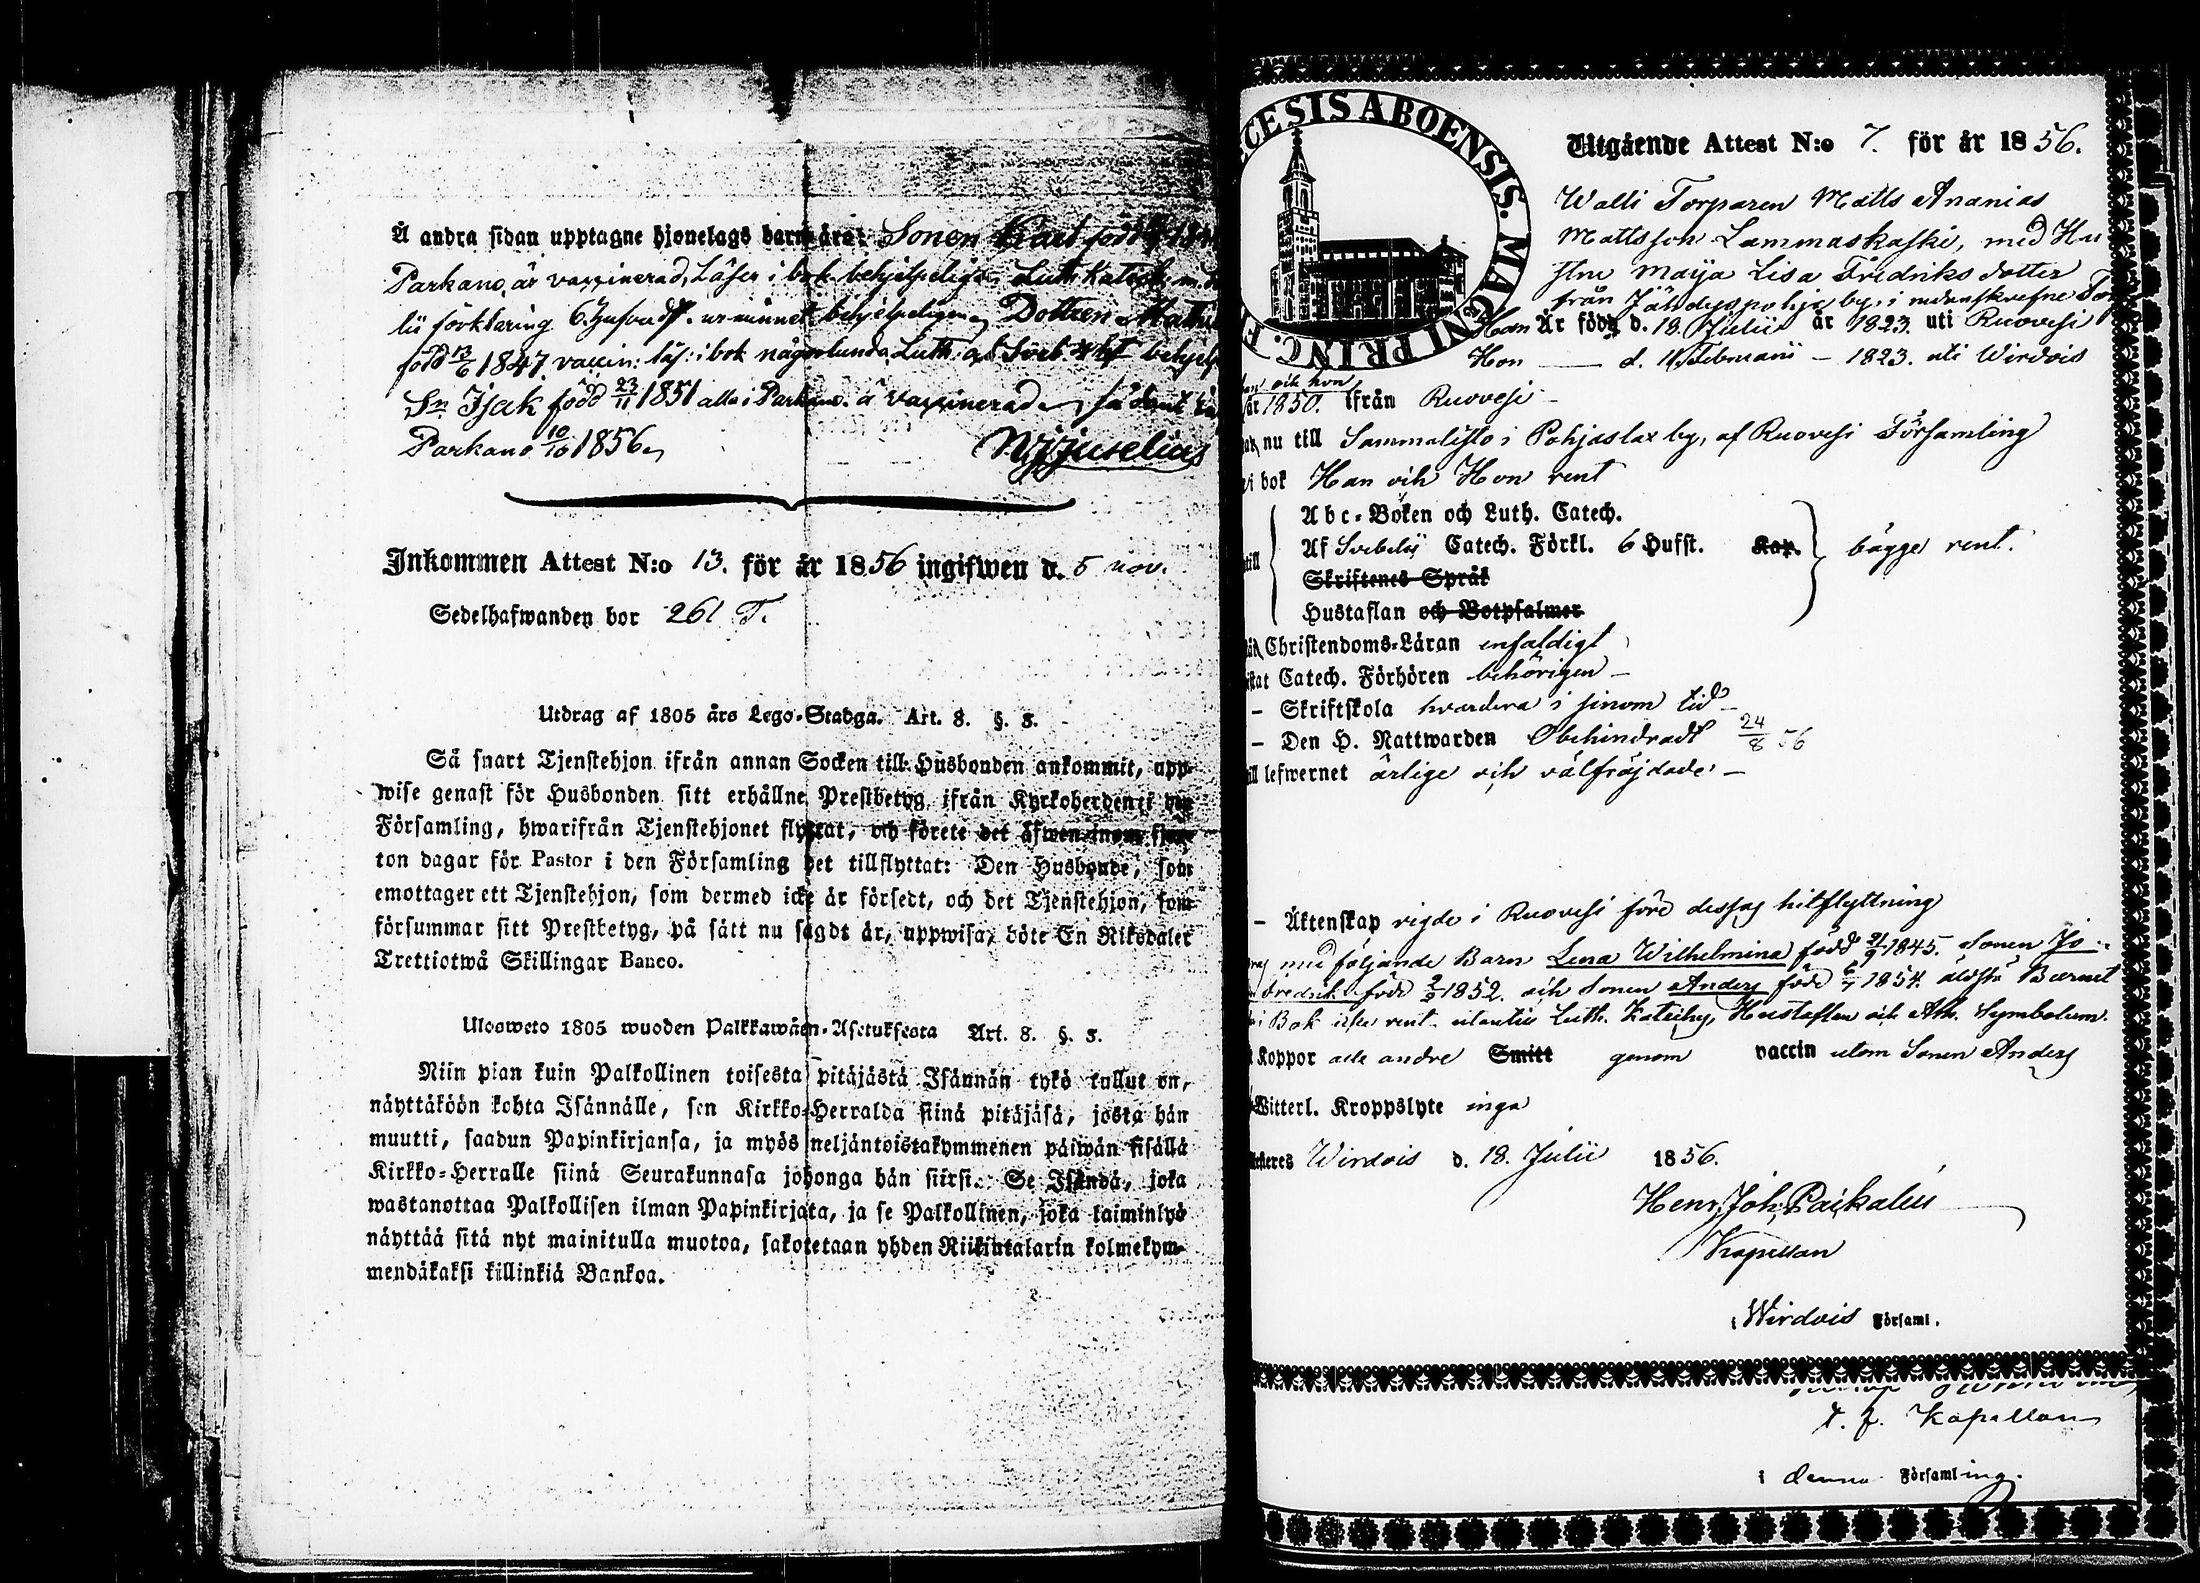 Å andra sidan upptagne hjonelags barn äro: Sonen Karl född
Parkano, är vaccinerad, Läser i bok behjelpeligen, Luth Katech. m.
lii förklaring 6 Hufvudst. ur minnet behjelpeligen, Dottren
född 13/6 1847 vaccin: läs: i bok någorlunda Luth. och Sveb.
Sn Isak född 23/11 1851 alla i Parkano. är vaccinerad
Parkano 10/10 1856
Inkommen Attest N:o 13. för år 1856 ingifwen d. 5 nov.
Sedelhafwanden bor 261 T.
Utdrag af 1805 års Lego-Stadga. Art. 8. §. 3.
Så snart Tjenstehjon ifrån annan Socken till Husbonden ankommit, upp-
wise genast för Husbonden sitt erhållne Prestbetyg ifrån Kyrkoherden i
Församling, hwarifrån Tjenstehjonet flyttat, och förete det äfwen inom fjor-
ton dagar för Pastor i den Församling det tillflyttat: Den Husbonde, som
emottager ett Tjenstehjon, som dermed icke är försedt, och det Tjenstehjon, som
försummar sitt Prestbetyg, på sätt nu sagdt är, uppwisa, böte En Riksdaler
Trettiotwå Skillingar Banco.
Ulosweto 1805 wuoden Palkkawäen-Asetuksesta Art. 8. §. 3.
Niin pian kuin Palkollinen toisesta pitäjästä Isännän tykö tullut on,
näyttäköön kohta Isännälle, sen Kirkko-Herralda siinä pitäjäsä, josta hän
muutti, saadun Papinkirjansa, ja myös neljäntoistakymmenen päiwän sisällä
Kirkko-Herralle siinä Seurakunnasa johonga hän siirsi. Se Isändä, joka
wastanottaa Palkollisen ilman Papinkirjata, ja se Palkollinen, joka laiminlyö
näyttää sitä nyt mainitulla muotoa, sakotetaan yhden Riikintalarin kolmekym-
mendäkaksi killinkiä Bankoa.
CESIS ABOENSIS. MAGNI PRINC. F
Utgående Attest N:o 7. för år 1856.
Torparen Matts Ananias
Mattsson Lammaskoski, med Hu
stru Maija Lisa Fredriksdotter
från Jähdyspohja by, i
Han Är född d. 18 Julii år 1823. uti Ruovesi
Hon — d. 11 Februarii — 1823. uti Wirdois
han och hon
år 1850. ifrån Ruovesi —
nu till Sammalisto i Pohjaslax by, af Ruovesi Församling
i bok Han och Hon rent
Abc-Boken och Luth. Catech.
Af Svebelii Catech. Förkl. 6 Hufst. Kap. bägge rent.
Skriftenes Språk
Hustaflan och Botpsalmer
Christendoms-Läran enfaldigt
Catech. Förhören behörigen —
– Skriftskola hvardera i sinom tid —
– Den H. Nattwarden Obehindradt 24/8 56
lefwernet ärlige och välfräjdade —
– Äktenskap vigde i Ruovesi före dessas hitflyttning
med följande Barn Lena Wilhelmina född 21/9 1845. Sonen Jo-
Fredrik född 2/9 1852. och Sonen Anders född 6/7 1854. äldsta Barnet
i Bok läser rent. Luth. Kateches, Hustaflan och Ath. Symbolum.
Koppor alla andre Smitt genom vaccin utom Sonen Anders
Witterl. Kroppslyte inga
Wirdois d. 18. Julii 1856.
Kapellan
i Wirdois Församl.
t. f. Kapellan
i denna Församling.